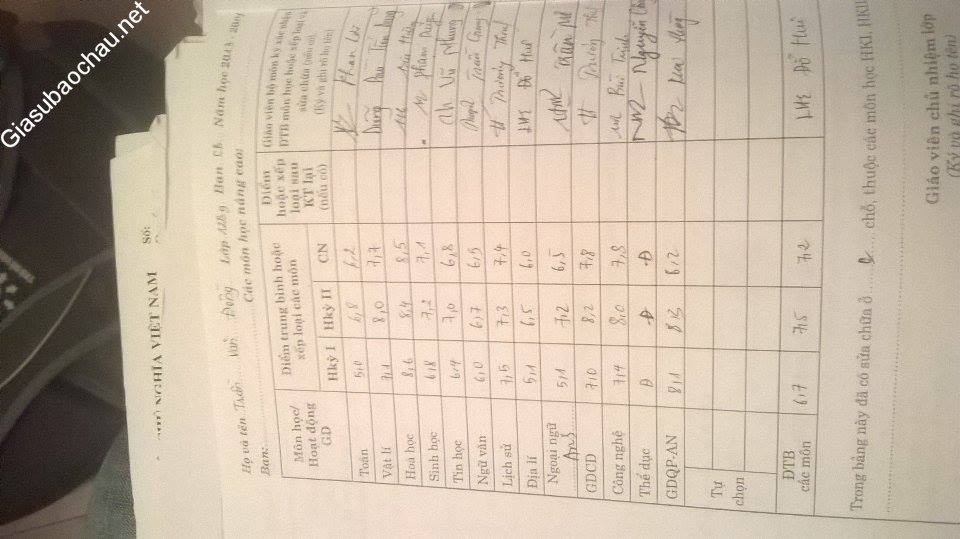 Giasubaochau.net
NGHĨA VIỆT NAM
Số:
Họ và tên: Trần Văn Đông Lớp 12B9 Ban CB Năm học 2013 - 20
Ban: Các môn học nâng cao:
Môn học/ Hoạt động GD | Điểm trung bình hoặc xếp loại các môn | Điểm hoặc xếp loại sau KT lại (nếu có) | Giáo viên bộ môn ký xác nhận ĐTB môn học hoặc xếp loại và sửa chữa (nếu có) (Ký và ghi rõ họ tên)
Hkỳ I | Hkỳ II | CN
Toán 5,0 6,8 6,2 Phan Lợi
Vật lí 7,1 8,0 7,7
Hoá học 8,6 8,4 8,5
Sinh học 6,8 7,2 7,1
Tin học 6,4 7,0 6,8 Vũ Nhung
Ngữ văn 6,0 6,7 6,5
Lịch sử 7,5 7,3 7,4 Thương Thu
Địa lí 5,1 6,5 6,0 Đỗ Huê
Ngoại ngữ Anh 5,1 7,2 6,5
GDCD 7,0 8,2 7,8
Công nghệ 7,4 8,0 7,8 Bùi Trịnh
Thể dục Đ Đ Đ Nguyễn
GDQP-AN 8,1 8,3 8,2
Tự chọn
ĐTB các môn 6,7 7,5 7,2 Đỗ Huê
Trong bảng này đã có sửa chữa ở chỗ, thuộc các môn học HKI, HKII
Giáo viên chủ nhiệm lớp
(Ký và ghi rõ họ tên)